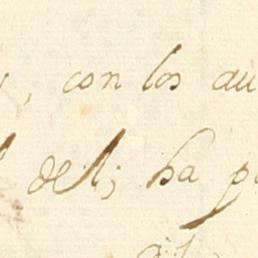 , con los au
del; ha p